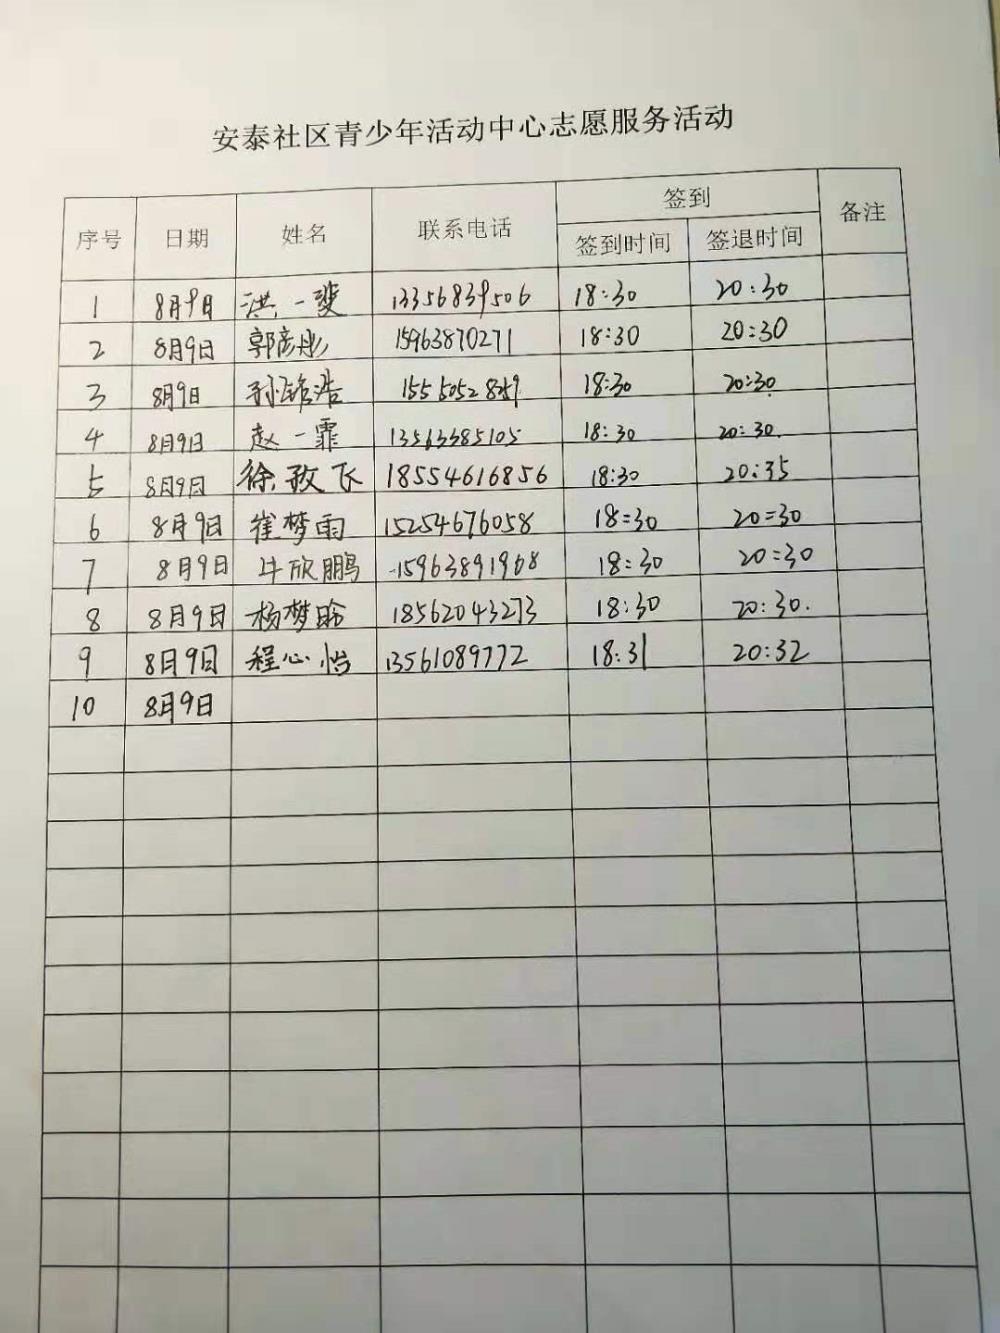 安泰社区青少年活动中心志愿服务活动
序号 日期 姓名 联系电话 签到 备注
签到时间 签退时间
1 8月9日 洪一斐 13356839506 18:30 20:30
2 8月9日 郭彦彤 15963870271 18:30 20:30
3 8月9日 孙锦浩 18:30 20:30
4 8月9日 赵一霏 13563385105 18:30 20:30.
5 8月9日 徐孜飞 18554616856 18:30 20:35
6 8月9日 崔梦雨 15254676058 18:30 20:30
7 8月9日 牛欣鹏 15963891968 18:30 20:30
8 8月9日 杨梦晗 18562043273 18:30 20:30.
9 8月9日 程心怡 13561089772 18:31 20:32
10 8月9日